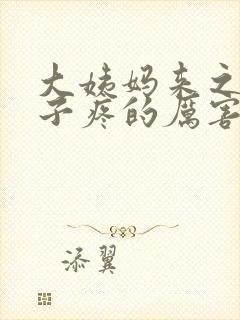 大姨妈来之
子疼的厉害
添翼